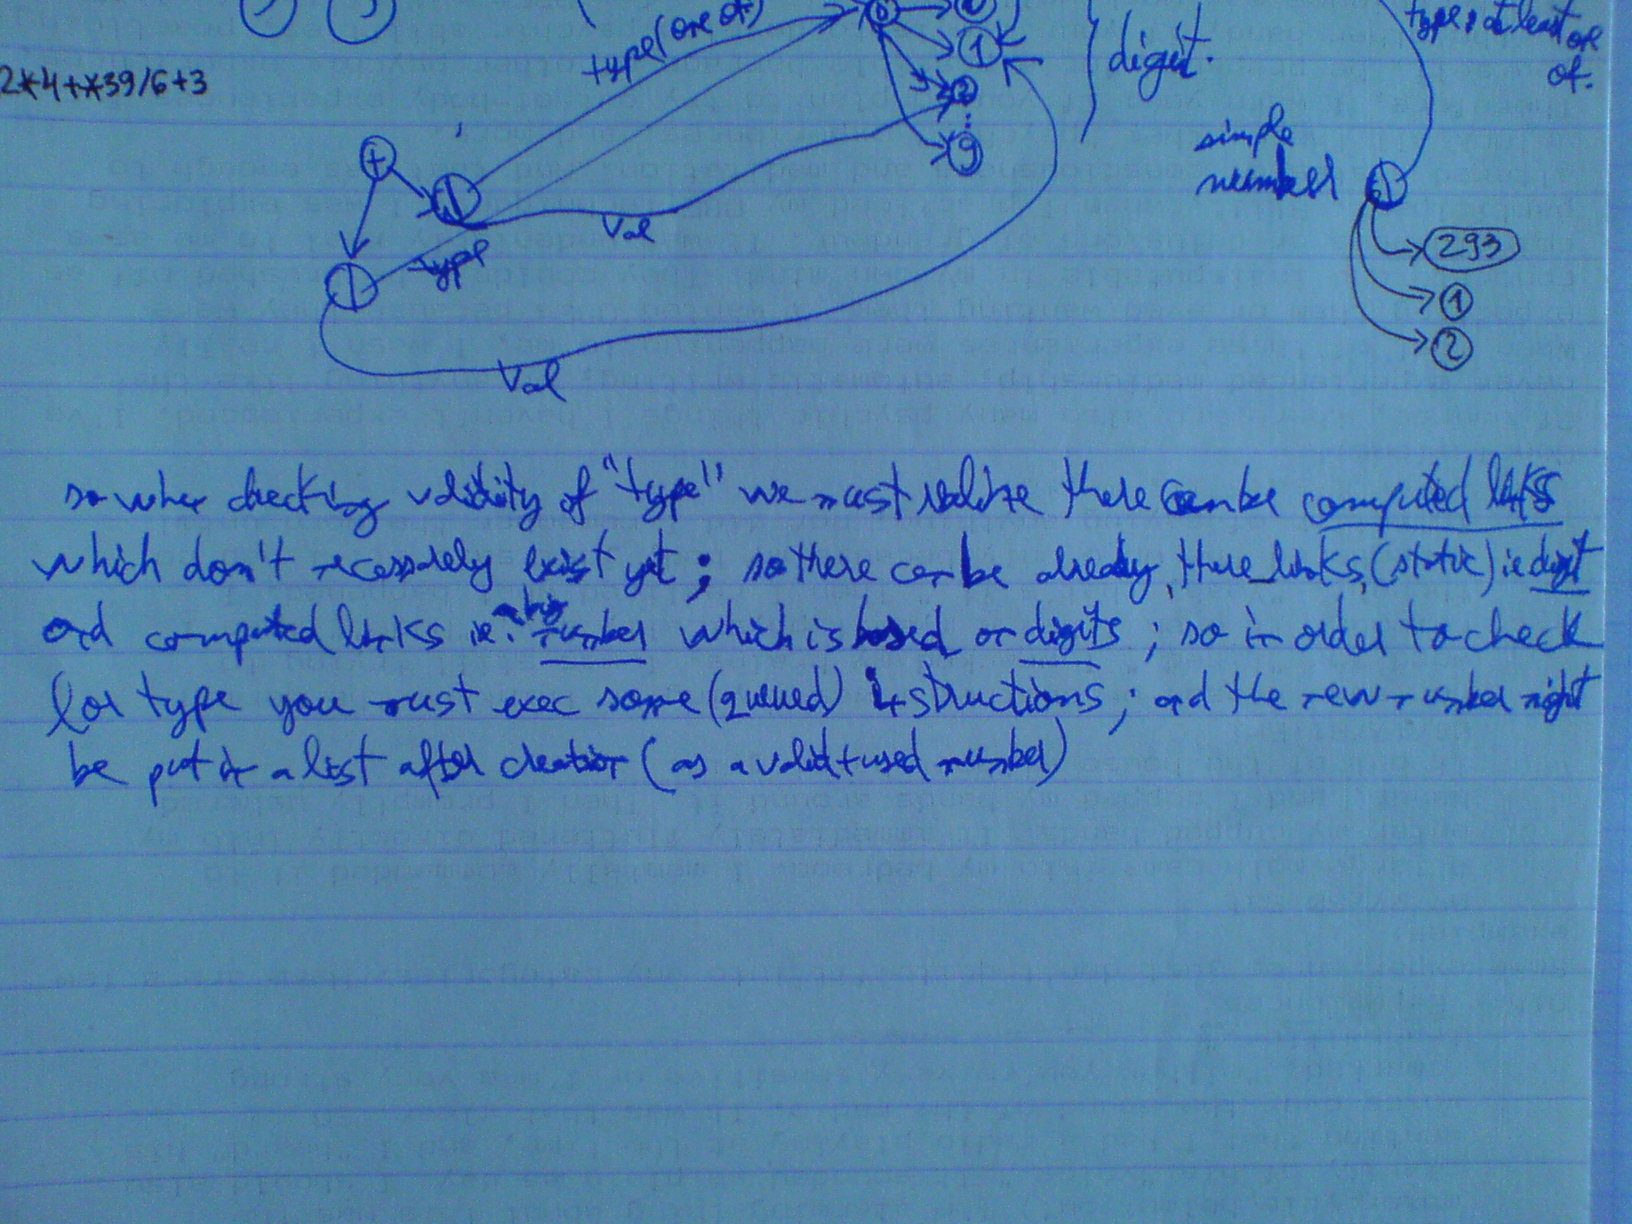 type(one of)
digit.
type: at least one
of.
2*4+*39/6+3
+
1
2
:
9
simple
number
val
type
val
293
1
2
so when checking validity of "type" we must realize there can be computed links
which don't necessarely exist yet; so there can be already there links (static) ie digit
and computed links ie. a big number which is based on digits; so in order to check
for type you must exec some (queued) instructions; and the new number might
be put in a list after creation (as a valid+used number)